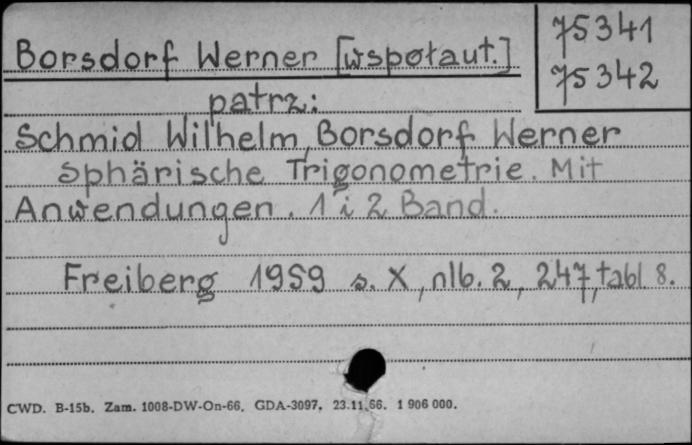 75341
75342
Borsdorf Werner [współaut.]
patrz:
Schmid Wilhelm, Borsdorf Werner
Sphärische Trigonometrie. Mit
Anwendungen. 1 i 2 Band.
Freiberg 1959 s. X, nlb. 2, 247, tabl 8.
CWD. B-15b. Zam. 1008-DW-On-66. GDA-3097. 23.11.66. 1 906 000.